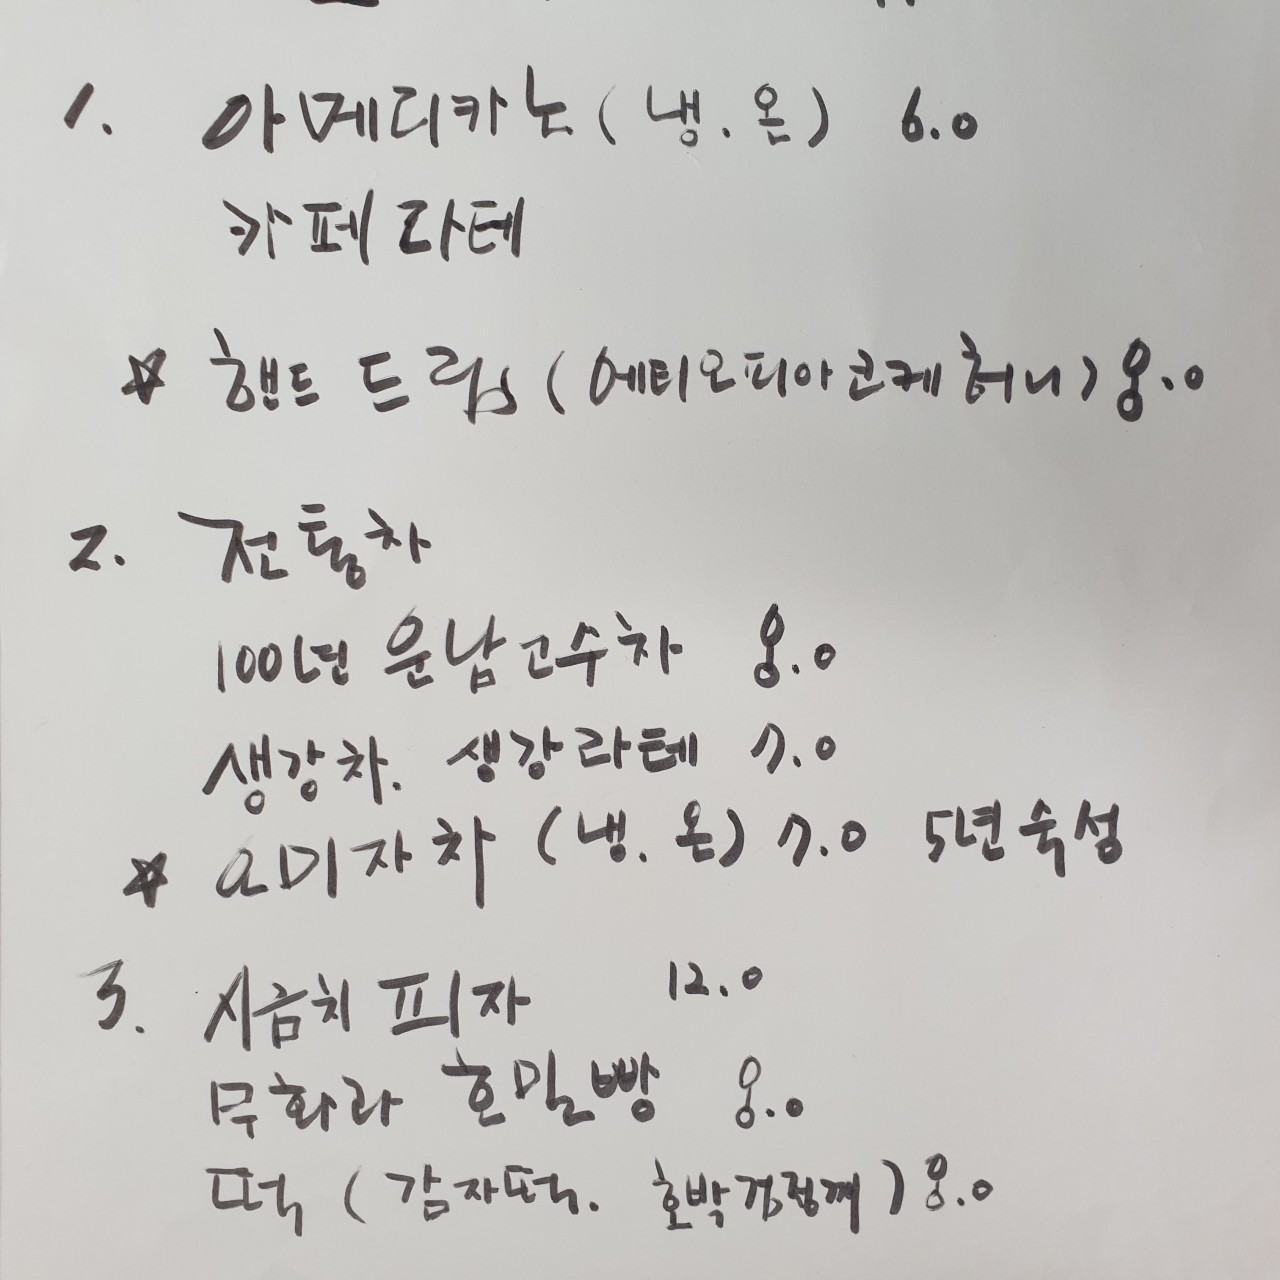 1. 아메리카노 (냉.온) 6.0
카페라테
☆ 핸드 드립 (에티오피아 코케 허니) 8.0
2. 전통차
100년 운남고수차 8.0
생강차. 생강라테 7.0
☆ 오미자차 (냉.온) 7.0 5년숙성
3. 시금치 피자 12.0
무화과 호밀빵 8.0
떡 (감자떡. 호박검정깨) 8.0